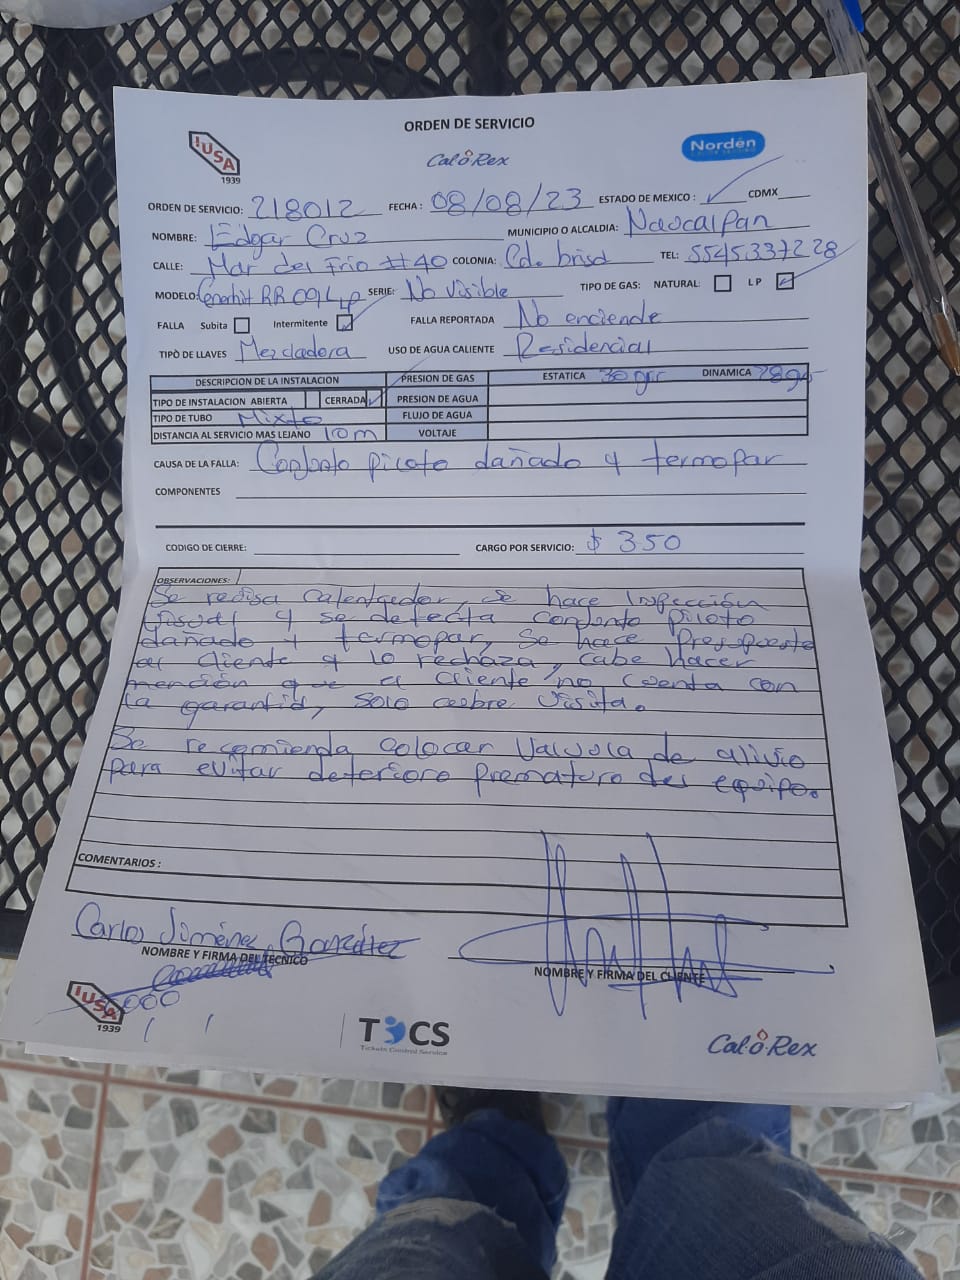 ORDEN DE SERVICIO
IUSA
1939
Cal-o-Rex
Nordén
ORDEN DE SERVICIO: 218012 FECHA : 08/08/23 ESTADO DE MEXICO : CDMX
NOMBRE: Edgar Cruz MUNICIPIO O ALCALDIA: Naucalpan
CALLE: Mar del Frio #40 COLONIA: Cd. brisa TEL: 5545337228
MODELO: RR 09 Lp SERIE: No Visible TIPO DE GAS: NATURAL: L P
FALLA Subita Intermitente FALLA REPORTADA No enciende
TIPÒ DE LLAVES Mezcladora USO DE AGUA CALIENTE Residencial
DESCRIPCION DE LA INSTALACION PRESION DE GAS ESTATICA 30 gr DINAMICA 28 gr
TIPO DE INSTALACION ABIERTA CERRADA PRESION DE AGUA
TIPO DE TUBO Mixto FLUJO DE AGUA
DISTANCIA AL SERVICIO MAS LEJANO 10m VOLTAJE
CAUSA DE LA FALLA: Conjunto piloto dañado y termopar
COMPONENTES
CODIGO DE CIERRE: CARGO POR SERVICIO: $ 350
OBSERVACIONES:
Se revisa calentador, se hace Inspección
visual y se detecta conjunto piloto
dañado y termopar, se hace Presupuesto
al cliente y lo rechaza, cabe hacer
mención que el cliente no cuenta con
la garantia, solo cobre visita.
Se recomienda colocar Valvula de alivio
para evitar deterioro prematuro del equipo.
COMENTARIOS :
Carlos Jiménez González
NOMBRE Y FIRMA DEL TECNICO
NOMBRE Y FIRMA DEL CLIENTE
IUSA
1939
TCS
Tickets Control Service
Cal-o-Rex